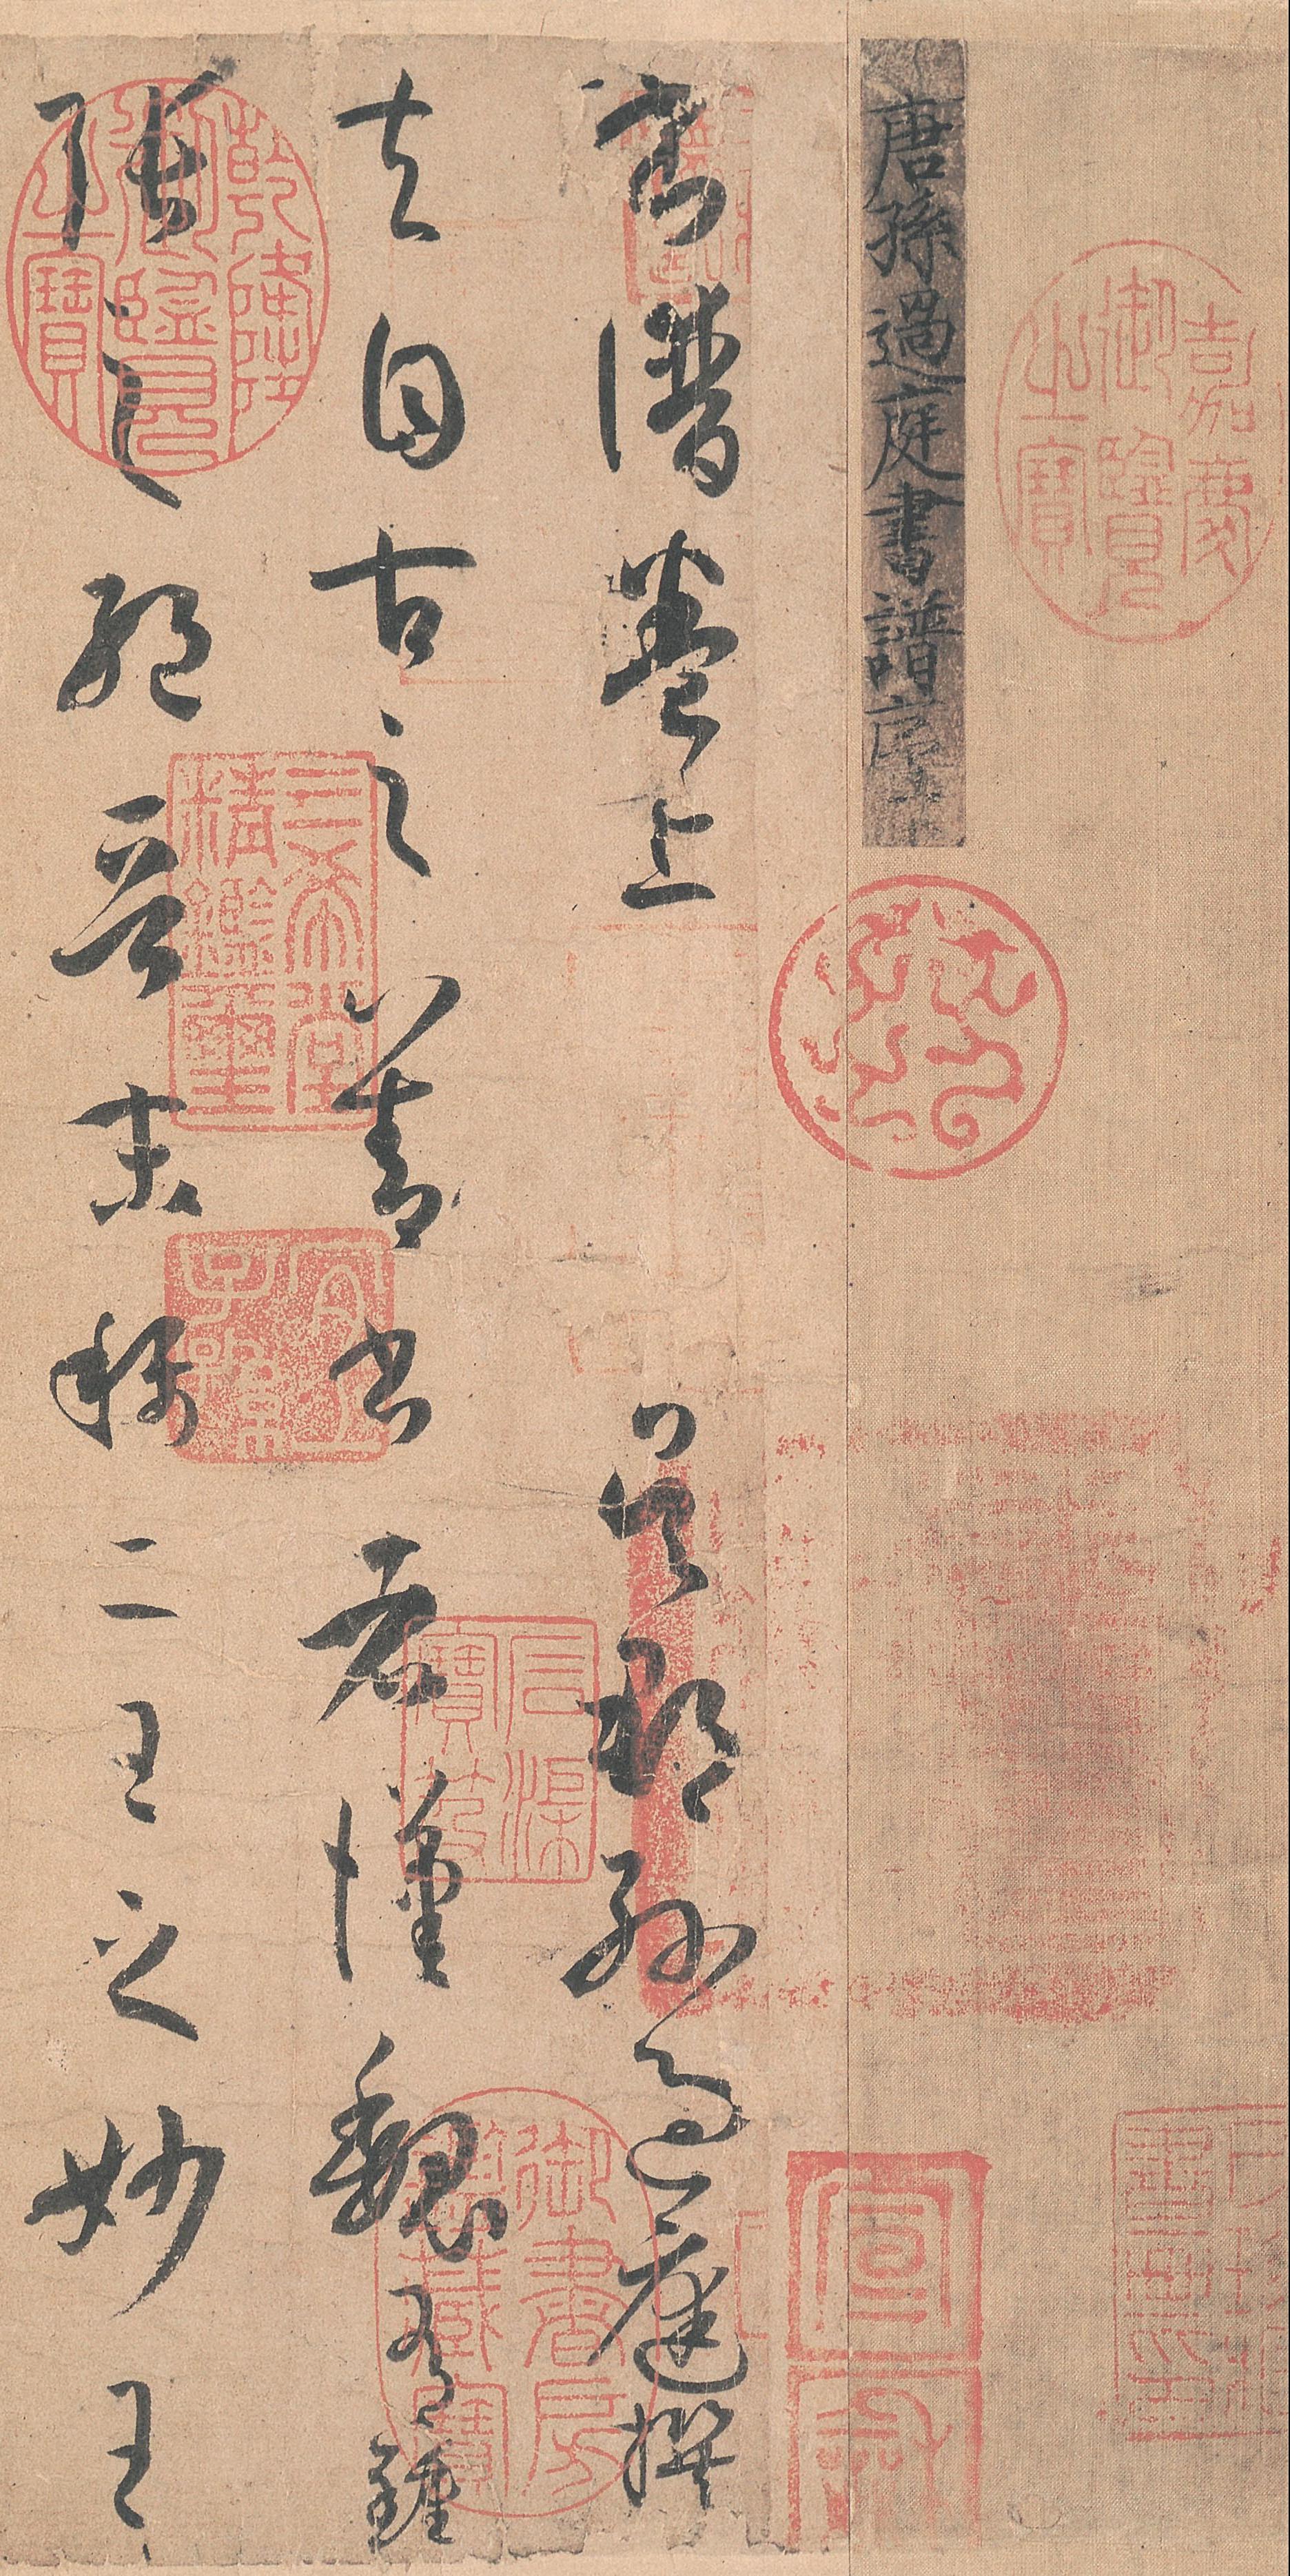 嘉慶御覽之寶
唐孫過庭書譜序
宣和
書譜卷上 吳郡孫過庭撰
夫自古之善書者漢魏有鍾
張之絕晉末稱二王之妙王
乾隆御覽之寶
三希堂精鑑璽
宜子孫
石渠寶笈
御書房鑑藏寶